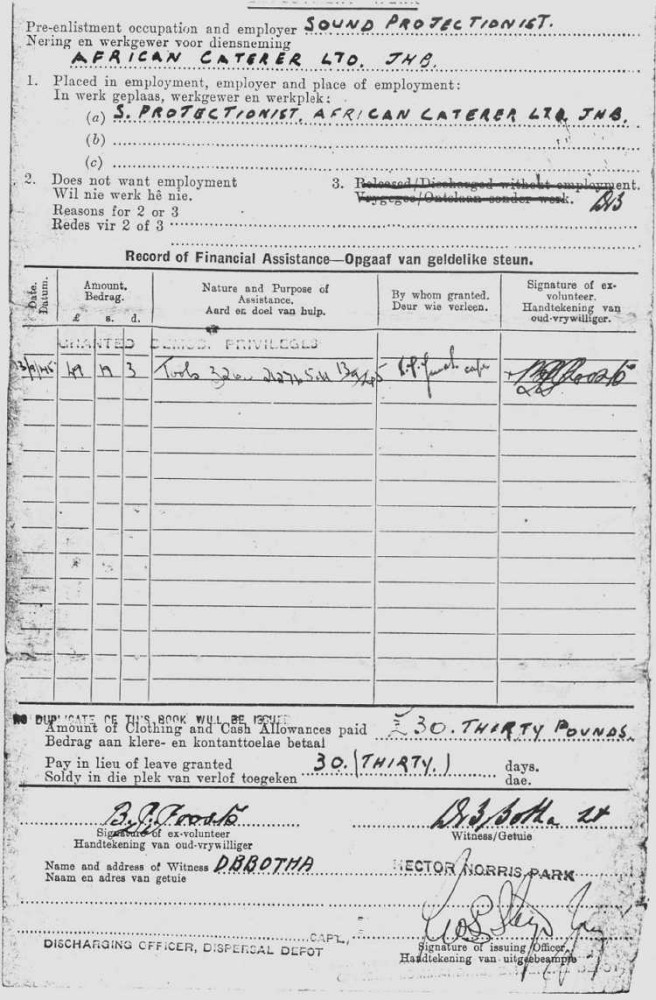 Pre-enlistment occupation and employer SOUND PROJECTIONIST.
Nering en werkgewer voor diensneming
AFRICAN CATERER LTD. JHB.
1. Placed in employment, employer and place of employment:
In werk geplaas, werkgewer en werkplek:
(a) S. PROTECTIONIST, AFRICAN CATERER LTD JNB.
(b)
(c)
2. Does not want employment 3. Released/Discharged without employment.
Wil nie werk hê nie. Vrygegee/Ontslaan sonder werk. DB
Reasons for 2 or 3
Redes vir 2 of 3
Record of Financial Assistance—Opgaaf van geldelike steun.
Date. Datum.
Amount. Bedrag.
£ s. d.
Nature and Purpose of Assistance.
Aard en doel van hulp.
By whom granted.
Deur wie verleen.
Signature of ex-volunteer.
Handtekening van oud-vrywilliger.
GRANTED DEMOB. PRIVILEGES
3 Tools
NO DUPLICATE OF THIS BOOK WILL BE ISSUED
Amount of Clothing and Cash Allowances paid £30. THIRTY POUNDS.
Bedrag aan klere- en kontanttoelae betaal
Pay in lieu of leave granted 30. (THIRTY.) days.
Soldy in die plek van verlof toegeken dae.
Botha Lt
Signature of ex-volunteer Witness/Getuie
Handtekening van oud-vrywilliger
Name and address of Witness D.B BOTHA HECTOR NORRIS PARK
Naam en adres van getuie
CAPT.,
DISCHARGING OFFICER, DISPERSAL DEPOT
Signature of issuing Officer.
Handtekening van uitgeebeampte